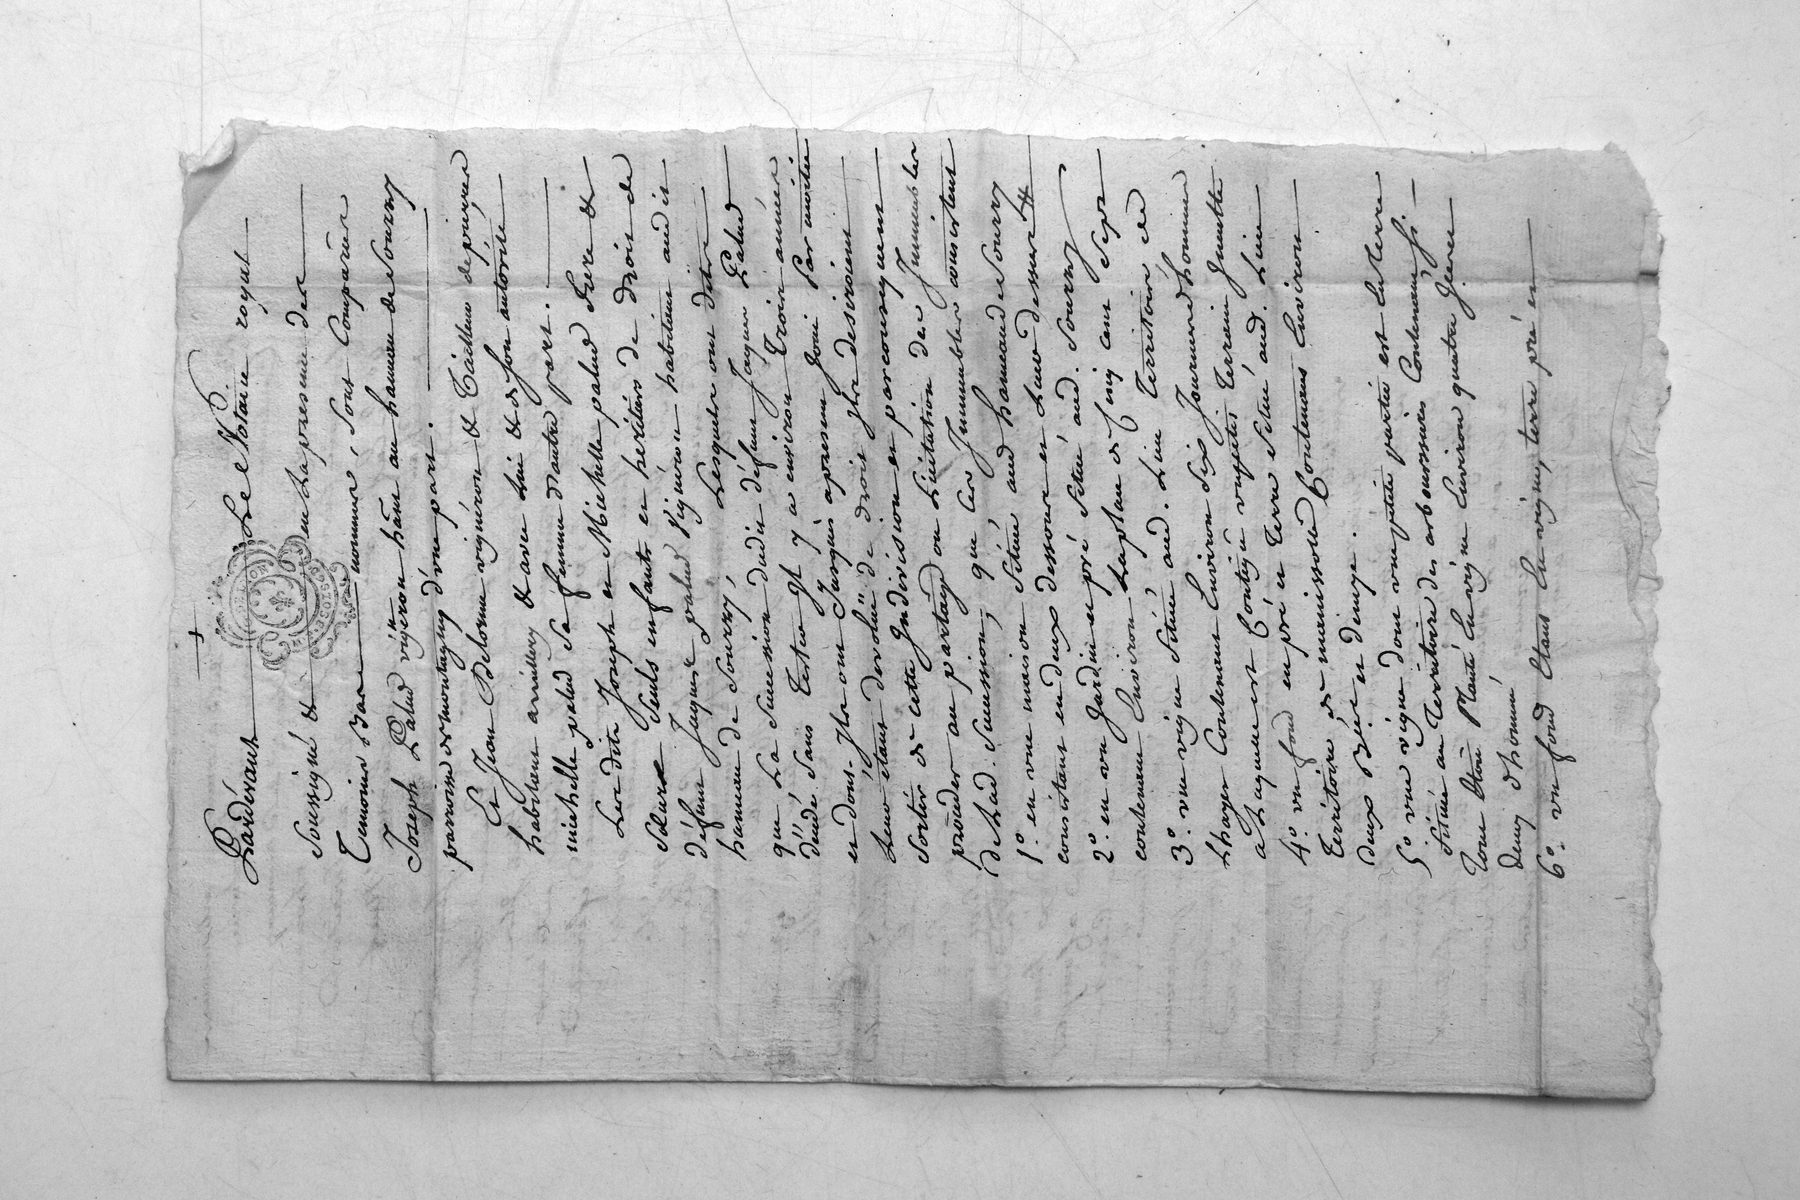 Pardevant Le Notaire royal
soussigné & en La presence des
Temoins bas nommés, sont comparus
Joseph Palud vigneron hãn au hameau de Sourzy
parroisse de montagny d'une part.
Et Jean Delorme vignéron & Tailleur de pierres
habitant & avec Lui & de son autorité
michelle palud sa femme d'autre part.
Les dits Joseph et Michelle palud frere &
Sœur seuls enfants et heritiers de droit de
défunt Jaques palud vigneron habitant audit
hameau de Sourzy, Lesquels ont dit
que La Succession dudit défunt Jaques Palud
décédé sans Tester Il y a environ Trois années
et dont Ils ont Jusques apresent Joui par moitié
Leur étant dévolüe de droit Ils desiroient
sortir de cette Indivision et par consequent
procéder au partage ou Licitation des Immeubles
de Lad. Succession, que Ces Immeubles consistent
1°. en une maison Située aud hameau de Sourzy
consistant en deux dessous et deux dessus
2°. en un Jardin et pré Situé aud. Sourzy
contenant Environ Lapsan de cinq cent sept
3°. une vigne Située aud. Lieu Territoire de
Lhayer Contenant Environ Six Journées d'hommes
a Laquelle est Contigu un petit Terrein Inculte
4°. un fond en pré et Terre Situé aud. Lieu
Territoire de manissolle Contenant Environ
deux et demye.
5°. une vigne dont une petite partie est en Terre
Située au Territoire des arboussieres Contenant Si
Tout étoit Planté En vigne Environ quatre Journées
demy d'homme
6°. un fond Etant En vigne, terre pré et